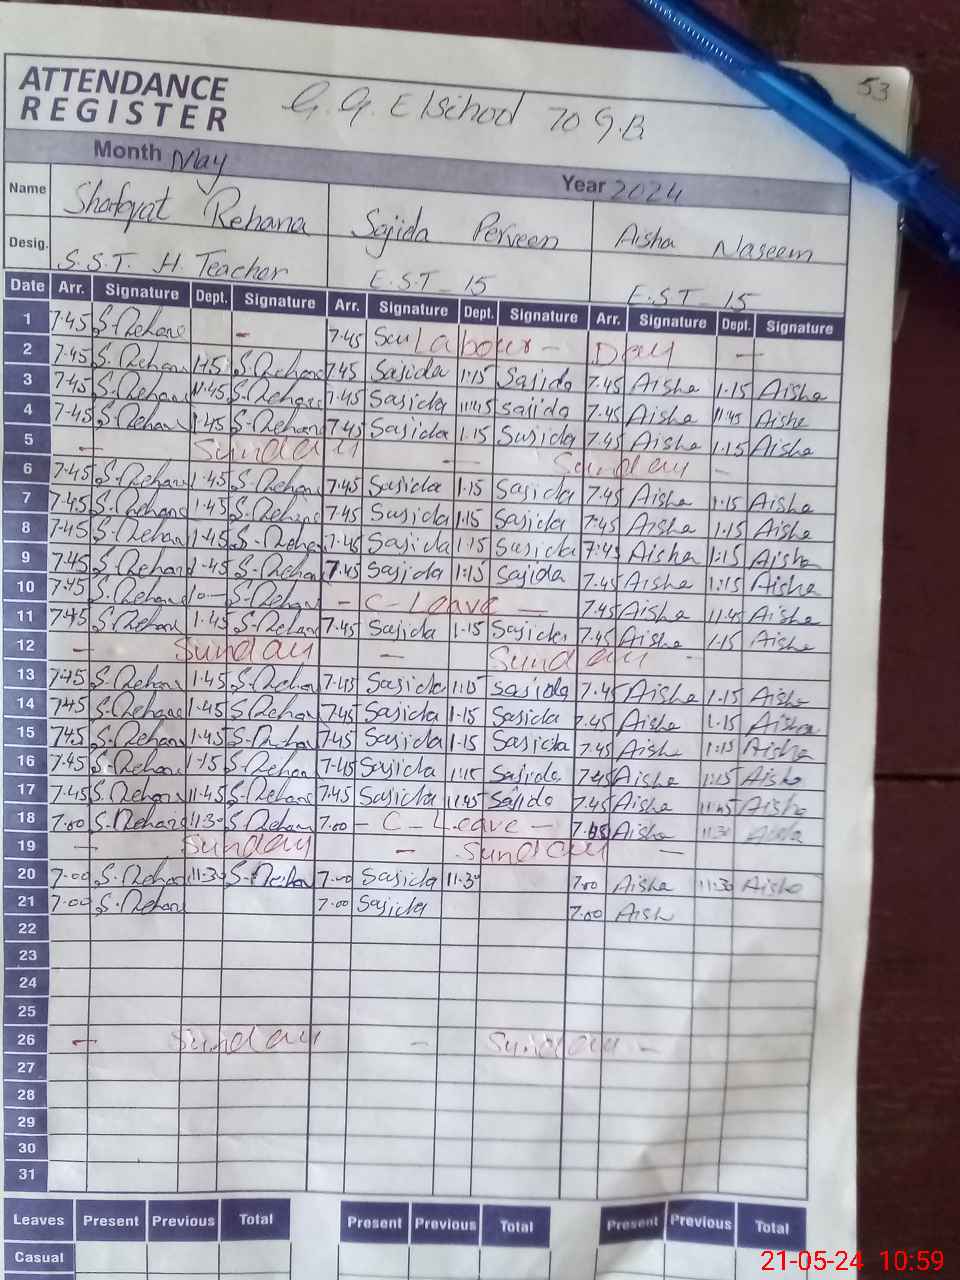 53
ATTENDANCE
REGISTER
G. G. E/School 70 G.B.
Month May Year 2024
Name Shafqat Rehana Sajida Perveen Aisha Naseem
Desig. S.S.T. H. Teacher E.S.T_15 E.S.T_15
Date Arr. Signature Dept. Signature Arr. Signature Dept. Signature Arr. Signature Dept. Signature
1 7.45 S.Rehana - 7.45 Labour - Day -
2 7.45 S.Rehana S.Rehana 7.45 Sajida 1:15 Sajida 7.45 Aisha 1.15 Aisha
3 7.45 S.Rehana 11.45 S.Rehana 7.45 Sajida 11:45 Sajida 7.45 Aisha 11.45 Aisha
4 7.45 S.Rehana 1.45 S.Rehana 7.45 Sajida 1.15 Sajida 7.45 Aisha 1.15 Aisha
5 - Sunday - Sunday -
6 7.45 S.Rehana 1.45 S.Rehana 7.45 Sajida 1.15 Sajida 7.45 Aisha 1.15 Aisha
7 7.45 S.Rehana 1.45 S.Rehana 7.45 Sajida 1.15 Sajida 7.45 Aisha 1.15 Aisha
8 7.45 S.Rehana 1.45 S.Rehana 7.45 Sajida 1:15 Sajida 7:45 Aisha 1:15 Aisha
9 7.45 S.Rehana 1.45 S.Rehana 7.45 Sajida 1:15 Sajida 7.45 Aisha 1:15 Aisha
10 7.45 S.Rehana S.Rehana - C-Leave - 7.45 Aisha 11.45 Aisha
11 7.45 S.Rehana 1.45 S.Rehana 7.45 Sajida 1.15 Sajida 7.45 Aisha 1.15 Aisha
12 - Sunday - Sunday -
13 7.45 S.Rehana 1.45 S.Rehana 7.45 Sajida 1:15 Sajida 7.45 Aisha 1.15 Aisha
14 7.45 S.Rehana 1.45 S.Rehana 7.45 Sajida 1.15 Sajida 7.45 Aisha 1.15 Aisha
15 7.45 S.Rehana 1.45 S.Rehana 7.45 Sajida 1.15 Sajida 7.45 Aisha 1:15 Aisha
16 7.45 S.Rehana S.Rehana 7.45 Sajida 1:15 Sajida 7.45 Aisha 1:15 Aisha
17 7.45 S.Rehana 11.45 S.Rehana 7.45 Sajida 11.45 Sajida 7.45 Aisha 11.45 Aisha
18 7.00 S.Rehana 11.30 S.Rehana 7.00 - C-Leave - Aisha 11.30 Aisha
19 - Sunday - Sunday -
20 7.00 S.Rehana 11.30 S.Rehana 7.00 Sajida 11.30 7.00 Aisha 11.30 Aisha
21 7.00 S.Rehana 7.00 Sajida 7.00 Aish
22
23
24
25
26 - Sunday - Sunday -
27
28
29
30
31
Leaves Present Previous Total Present Previous Total Present Previous Total
Casual
21-05-24 10:59